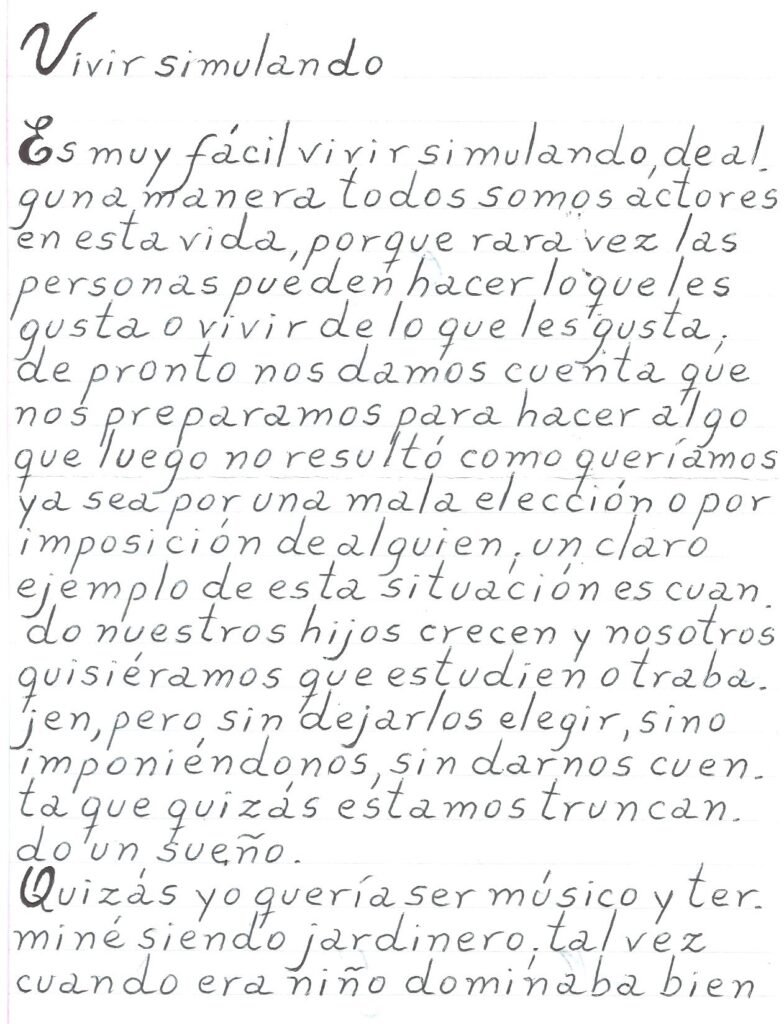 Vivir simulando
Es muy fácil vivir simulando, de al-
guna manera todos somos actores
en esta vida, porque rara vez las
personas pueden hacer lo que les
gusta o vivir de lo que les gusta;
de pronto nos damos cuenta que
nos preparamos para hacer algo
que luego no resultó como queríamos
ya sea por una mala elección o por
imposición de alguien; un claro
ejemplo de esta situación es cuan-
do nuestros hijos crecen y nosotros
quisiéramos que estudien o traba-
jen, pero sin dejarlos elegir, sino
imponiéndonos, sin darnos cuen-
ta que quizás estamos truncan-
do un sueño.
Quizás yo quería ser músico y ter-
miné siendo jardinero; tal vez
cuando era niño dominaba bien